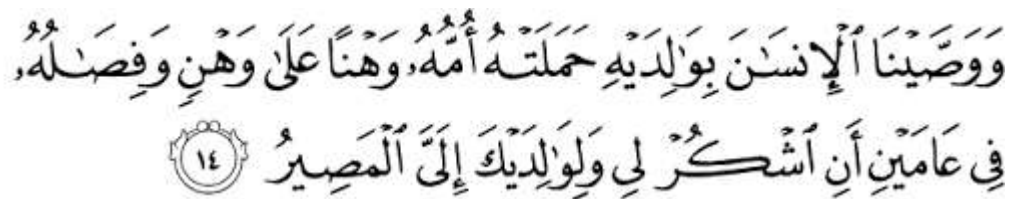 وَوَصَّيْنَا ٱلْإِنسَٰنَ بِوَٰلِدَيْهِ حَمَلَتْهُ أُمُّهُۥ وَهْنًا عَلَىٰ وَهْنٍ وَفِصَٰلُهُۥ
فِى عَامَيْنِ أَنِ ٱشْكُرْ لِى وَلِوَٰلِدَيْكَ إِلَىَّ ٱلْمَصِيرُ ١٤